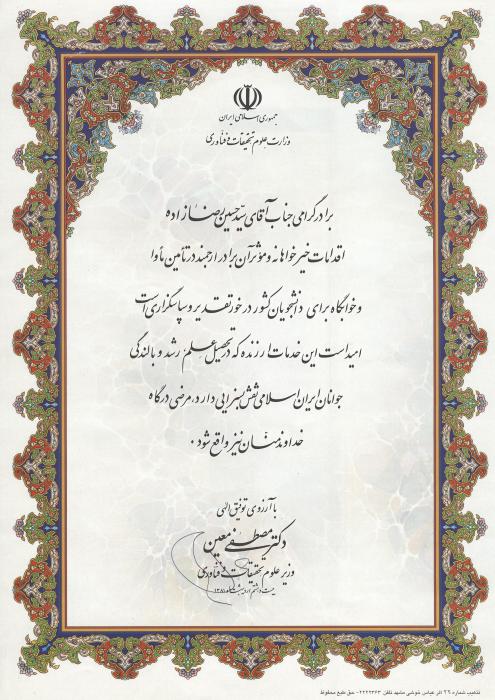 جمهوری اسلامی ایران
وزارت علوم تحقیقات و فناوری
برادر گرامی جناب آقای سید حسین رضازاده
اقدامات خیرخواهانه و مؤثر آن برادر ارجمند در تأمین مأوا
و خوابگاه برای دانشجویان کشور در خور تقدیر و سپاسگزاری است
امید است این خدمات ارزنده که در تحصیل علم و رشد و بالندگی
جوانان ایران اسلامی نقش بسزایی دارد، مرضی درگاه
خداوند منان نیز واقع شود.
با آرزوی توفیق الهی
دکتر مصطفی معین
وزیر علوم تحقیقات و فناوری
بیست و هشتم اردیبهشت ماه ۱۳۸۱
تذهیب شماره ۲۹ اثر عباس خوشی مشهد تلفن ۲۲۲۲۳۶۳ - حق طبع محفوظ